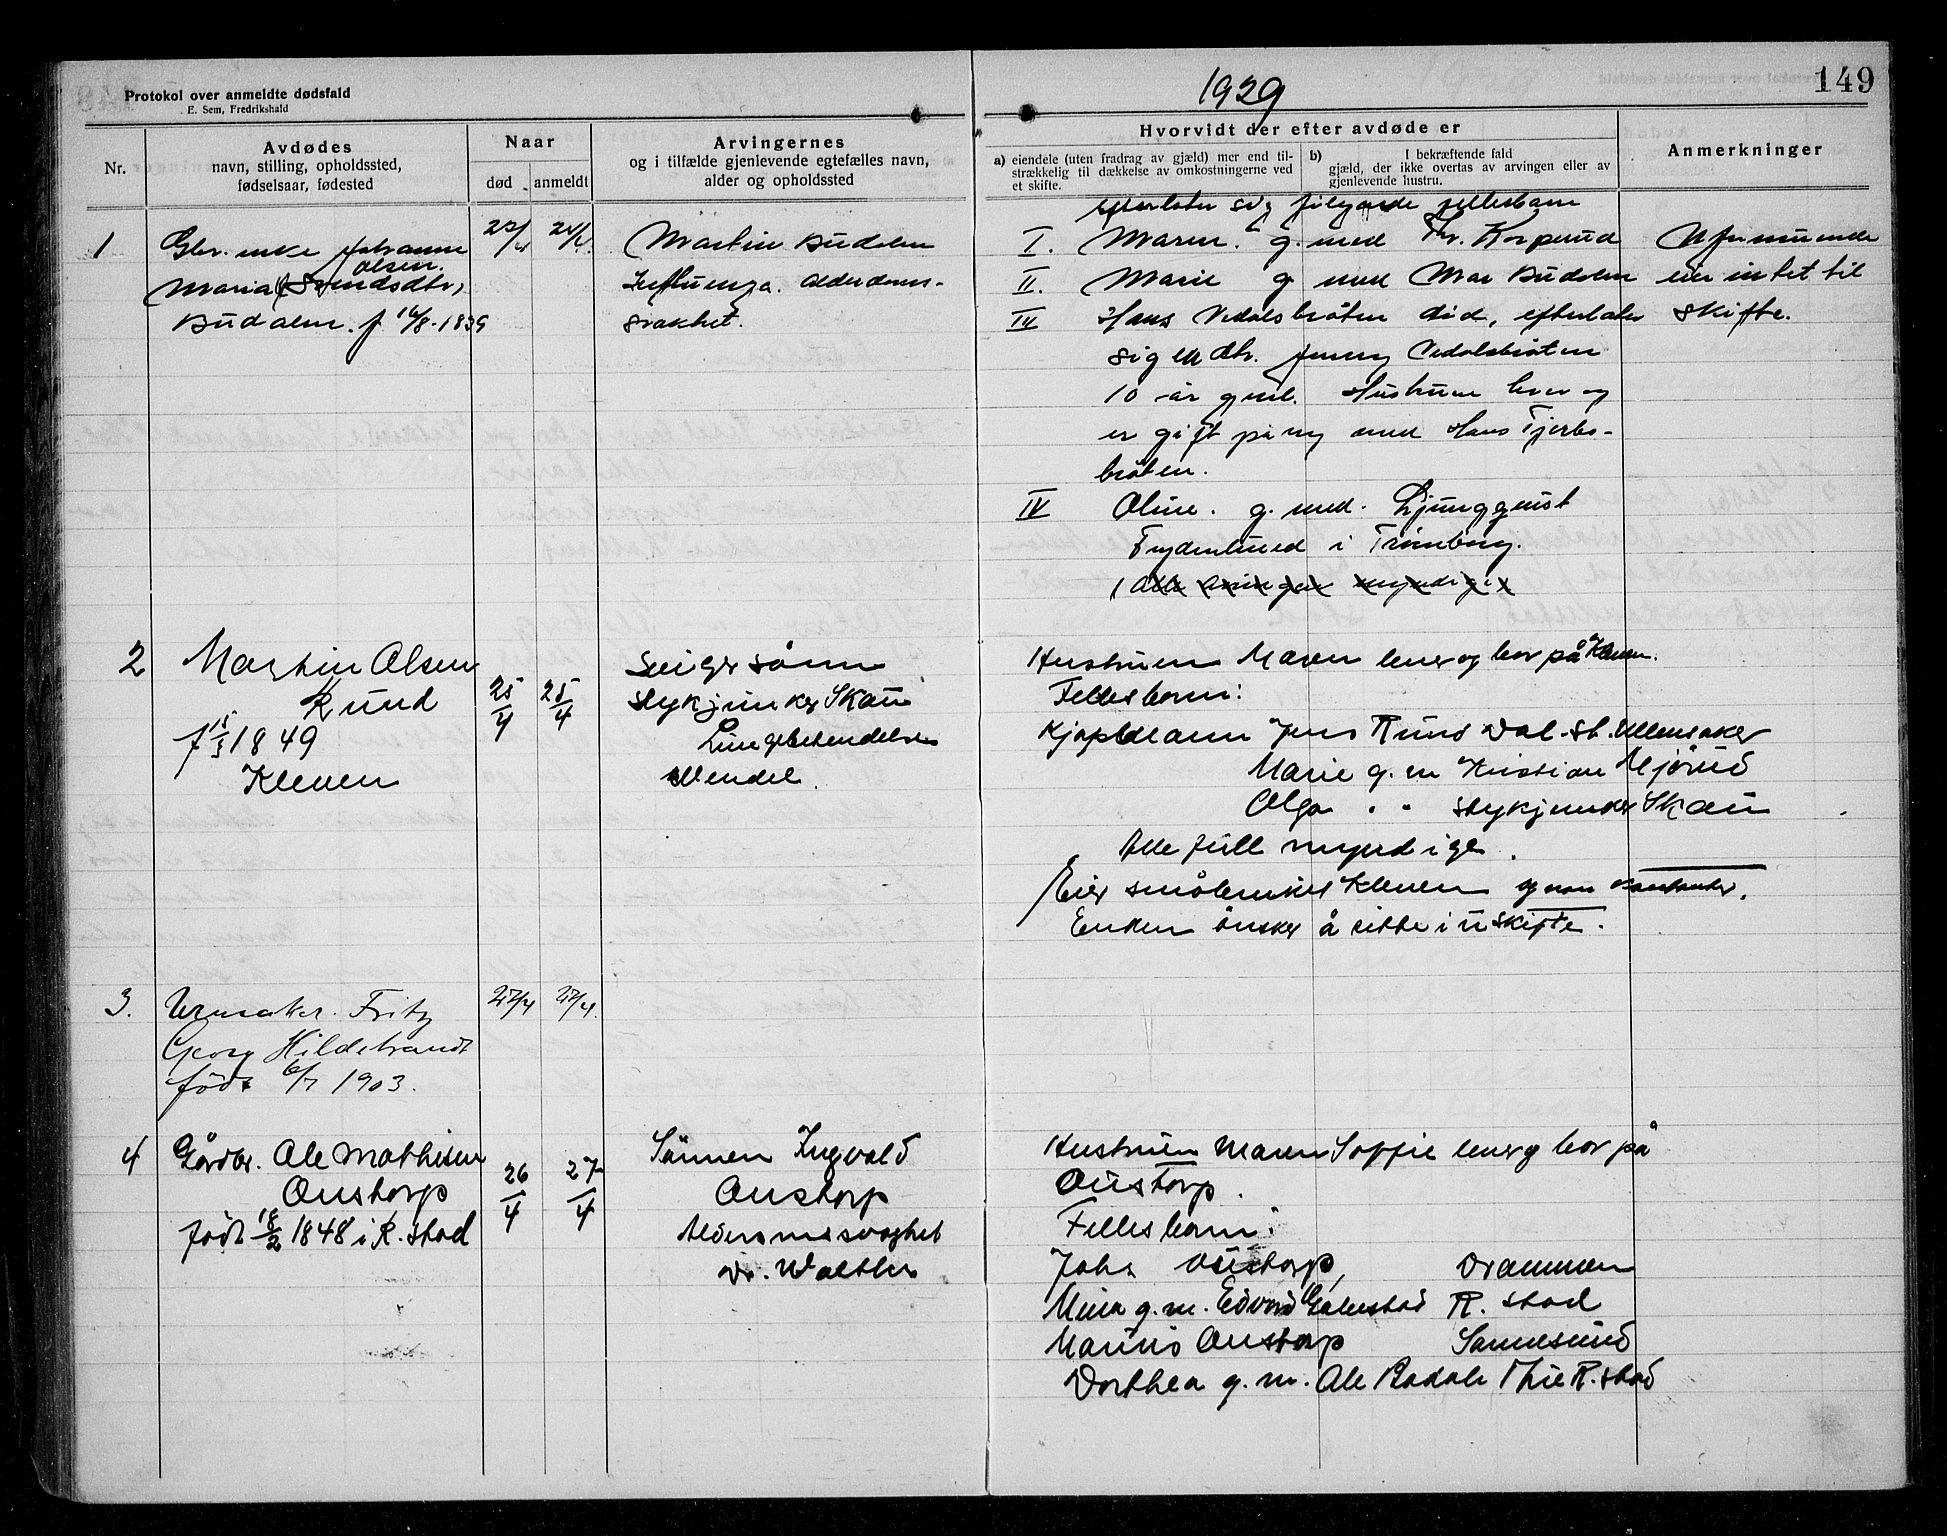 Protokol over anmeldte dødsfald
E. Sem, Fredrikshald
1929
149
Nr.
Avdødes
navn, stilling, opholdssted,
fødselsaar, fødested
Naar
død
anmeldt
Arvingernes
og i tilfælde gjenlevende egtefælles navn,
alder og opholdssted
Hvorvidt der efter avdøde er
a) eiendele (uten fradrag av gjæld) mer end til-
strækkelig til dækkelse av omkostningerne ved
et skifte.
b) I bekræftende fald
gjæld, der ikke overtas av arvingen eller av
gjenlevende hustru.
Anmerkninger
1
enke Johanne
Olsen
Maria
Budalen. f 16/8-1839
24/4
Martin Budalen
Influenza. Alderdoms-
svakhet.
efterlater sig følgende fellesbarn
I. Maren. g. med Korperud
II. Marie g med Mar Budalen
III Hans Vedalsbråten død, efterlater
sig en dtr. Jenny Vedalsbråten
10 år gml. Hustruen lever og
er gift påny med Hans Tjerbs-
bråten.
IV Oline. g. med. Ljungquist
Frydenlund i Trømborg.
(Alle arvinger myndige)
Ufor­muende
eier intet til
skifte.
2
Martin Olsen
Rund
f 15/3 1849
Kleven
25/4
25/4
Svigersønn
Stykjunker Skau
Lungebetendelse
Wendel.
Hustruen Maren lever og bor på Kleven.
Fellesbarn:
Kjøpmann Jens Rund Dal. st. Ullensaker
Marie g. m Kristian Mjørud
Olga " " stykjunker Skau
Alle full myndige.
Eier småbruket Kleven og noen kontanter.
Enken ønsker å sitte i uskifte.
3.
Urmaker. Fritz
Georg Hildebrandt
født 6/7 1903.
27/4
4
Gårdbr. Ole Mathisen
Oustorp
født 18/2 1848 i R. stad
26/4
27/4
Sønnen Ingvald
Oustorp
Alderdomssvaghet
Dr. Walther
Hustruen Maren Soffie lever og bor på
Oustorp.
Fellesbarn:
Johs Oustorp, Drammen
Mina g. m. Edvard R. stad
Marius Oustorp Sannesund
Dorthea g. m. Ole R. stad